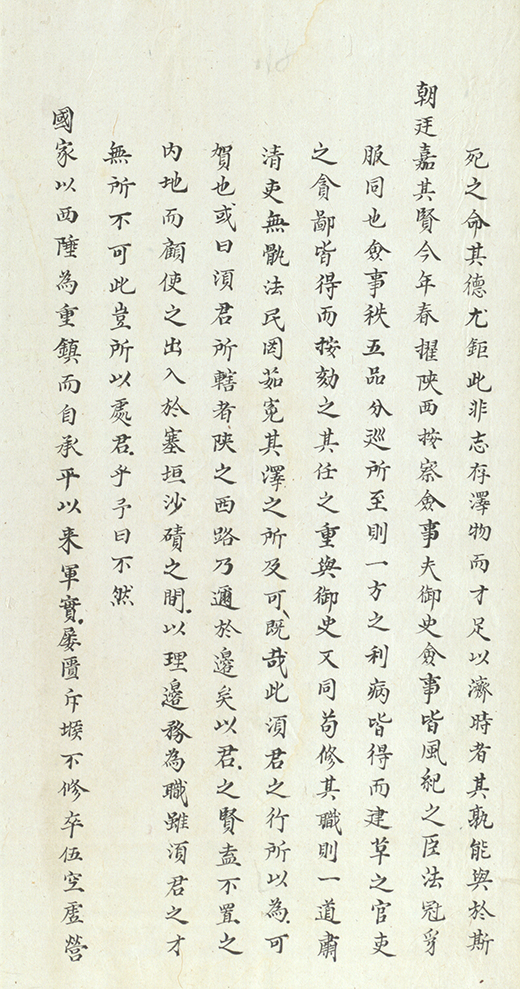 死之命其德尤鉅此非志存澤物而才足以濟時者其孰能與於斯
朝廷嘉其賢今年春擢陝西按察僉事夫御史僉事皆風紀之臣法冠豸
服同也僉事秩五品分巡所至則一方之利病皆得而建草之官吏
之貪鄙皆得而按劾之其任之重與御史又同苟修其職則一道肅
清吏無骩法民罔茹冤其澤之所及可既哉此湏君之行所以為可
賀也或曰湏君所轄者陝之西路乃邇於邊矣以君之賢盍不置之
內地而顧使之出入於塞垣沙磧之間以理邊務為職雖湏君之才
無所不可此豈所以處君乎予曰不然
國家以西陲為重鎮而自承平以来軍實屡匱斥堠不修卒伍空虛營